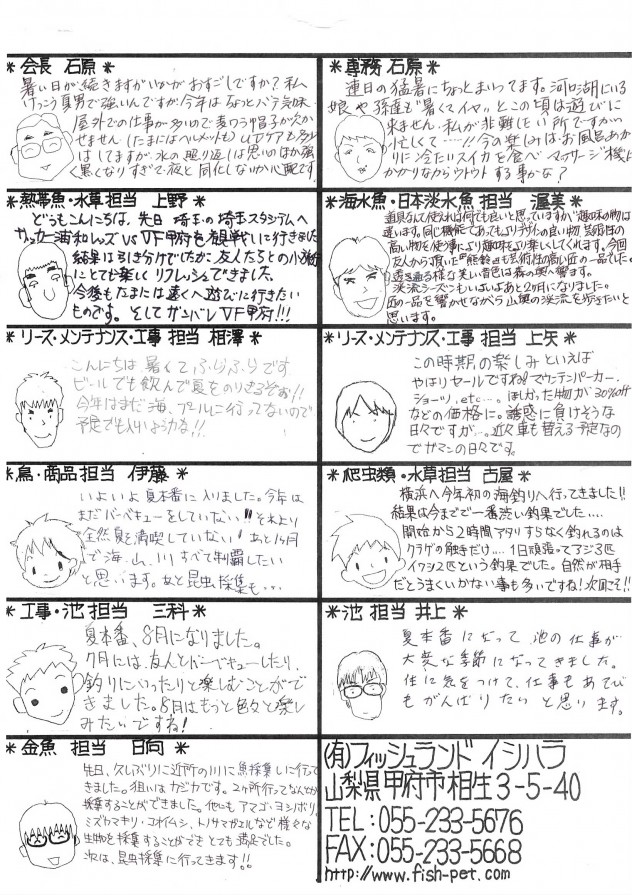 ＊会長 石原＊
暑い日が続きますがいかがおすごしですか?私
けっこう夏男で強いんですが今年はちょっとバテ気味
屋外での仕事が多いので麦ワラ帽子が欠か
せません(たまにはヘルメットも)UVケアも多少
はしてますが、水の照り返しは思いのほか強く
黒くなりすぎて夜と同化しないか心配です
＊専務 石原＊
連日の猛暑にちょっとまいってます。河口湖にいる
娘や孫達も「暑くてイヤ」とこの頃は遊びに
来ません。私が非難したい所ですが
忙しくて……!!今の楽しみはお風呂あが
りに冷たいスイカを食べマッサージ機に
かかりながらウトウトする事かな?
＊熱帯魚・水草担当 上野＊
どうもこんにちは、先日埼玉の埼玉スタジアムへ
サッカー浦和レッズVS VF甲府を観戦しに行きました
結果は引き分けでしたが友人たちとの小旅行
にとても楽しくリフレッシュできました。
今後もたまには遠くへ遊びに行きたい
ものです。そしてガンバレVF甲府!!!
＊海水魚・日本淡水魚 担当 渥美＊
道具なんて使えれば何でも良いと思っていますが趣味の物は
違います。同じ機能であってもよりデザインの良い物 芸術性の
高い物を使う事により趣味をより楽しくしてくれます。今回
友人から頂いた『熊鈴』も芸術性の高い匠の一品でした。
透き通る様な美しい音色は森の奥へ響きます。
渓流シーズンもいよいよあと2ヶ月になりました。
匠の一品を響かせながら山奥の渓流を歩きたいと
思います。
＊リース・メンテナンス・工事 担当 相澤＊
こんにちは 暑くてふらふらです
ビールでも飲んで夏をのりきるぞぉ!!
今年はまだ海、プールに行ってないので
予定でも入れようかな!!
＊リース・メンテナンス・工事 担当 上矢＊
この時期の楽しみといえば
やはりセールですね!マウンテンパーカー、
ショーツ、etc…。ほしかった物が30%off
などの価格に。誘惑に負けそうな
日々ですが…。近々車も替える予定なの
でガマンの日々です。
＊鳥・商品担当 伊藤＊
いよいよ夏本番に入りました。今年は
まだバーベキューをしていない!!それより
全然夏を満喫していない!あと1ヶ月
で海、山、川すべて制覇したい
と思います。あと昆虫採集も…
＊爬虫類・水草担当 古屋＊
横浜へ今年初の海釣りへ行ってきました!!
結果は今までで一番渋い釣果でした…。
開始から2時間アタリすらなく釣れるのは
クラゲの触手だけ…。1日頑張ってアジ3匹
イワシ2匹という釣果でした。自然が相手
だとうまくいかない事も多いですね!次回こそ!!
＊工事・池 担当 三科＊
夏本番、8月になりました。
7月には、友人とバーベキューしたり、
釣りにいったりと楽しむことがで
きました。8月はもっと色々と楽し
みたいですね!
＊池 担当 井上＊
夏本番になって 池の仕事が
大変な季節になってきました。
体に気をつけて、仕事もあそび
もがんばりたいと思います。
＊金魚 担当 日向＊
先日、久しぶりに近所の川に魚採集しに行って
きました。狙いはカジカです。2ヶ所行ってなんとか
採集することができました。他にもアマゴ・ヨシノボリ、
ミズカマキリ・コオイムシ、トノサマガエルなど様々な
生物を採集することができとても満足でした。
次は、昆虫採集に行ってきます!!
(有)フィッシュランド イシハラ
山梨県甲府市相生3-5-40
TEL:055-233-5676
FAX:055-233-5668
http://www.fish-pet.com